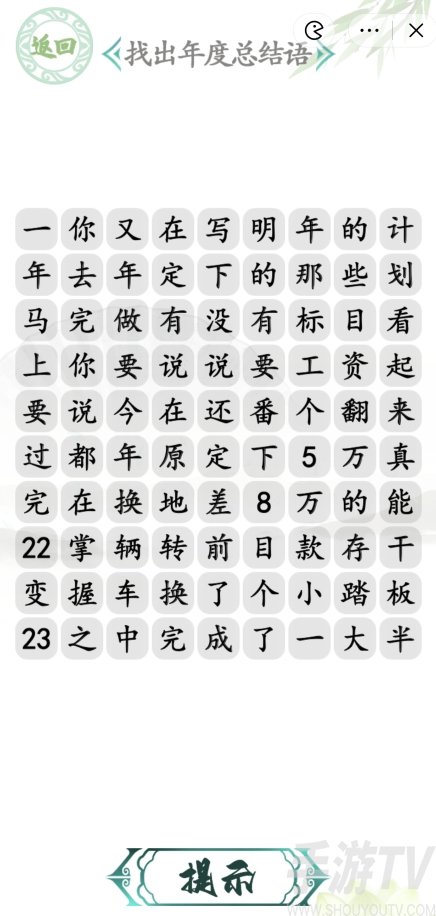 返回
找出年度总结语
一你又在写明年的计
年去年定下的那些划
马完做有没有标目看
上你要说说要工资起
要说今在还番个翻来
过都年原定下5万真
完在换地差8万的能
22掌辆转前目款存干
变握车换了个小踏板
23之中完成了一大半
提示
手游TV
WWW.SHOUYOUTV.COM